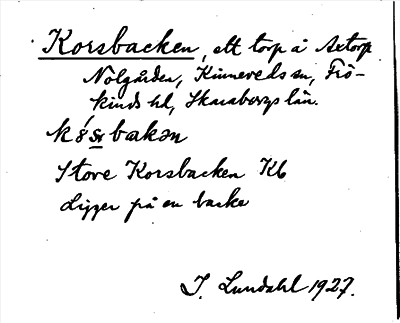 Korsbacken, ett torp å Axtorp
Nolgården, Kinneveds sn, Frö-
kinds hd, Skaraborgs län.
Store Korsbacken Kb
Ligger på en backe
I. Lundahl 1927.